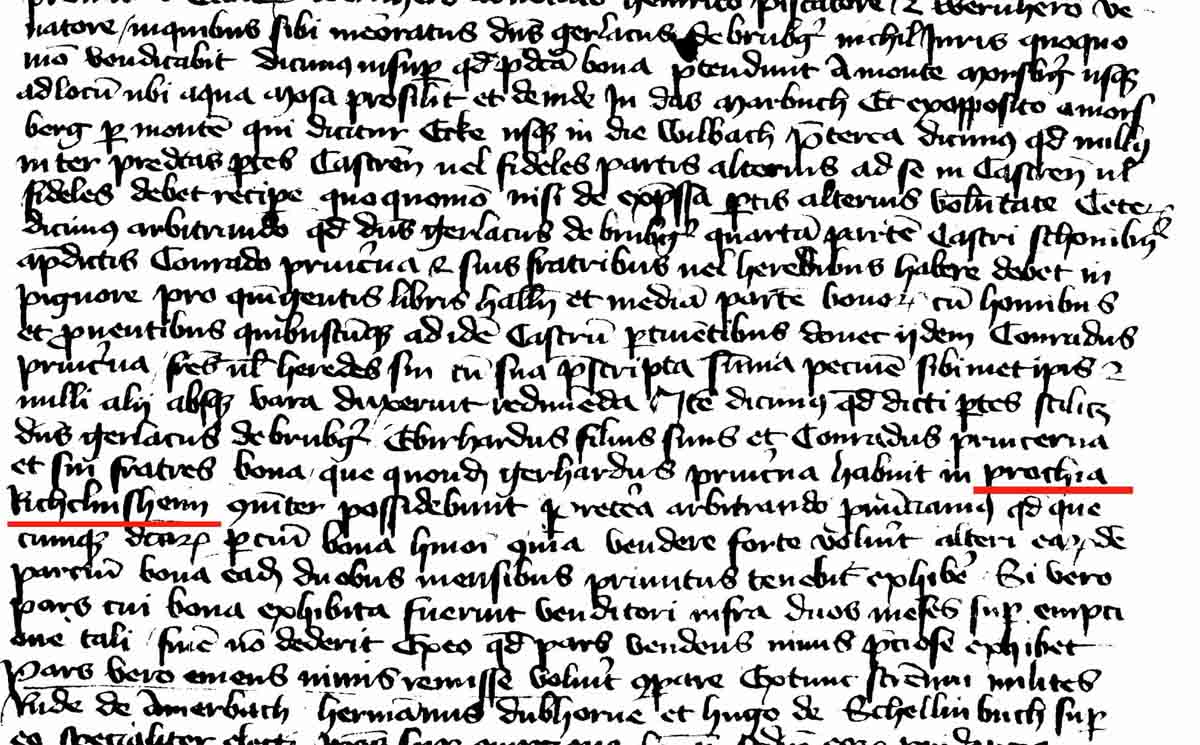 natore / in quibus sibi meoratus dns gerlacus de brubg nichil Juris quoquo
mo vendicabit dicimus insup qd pdca bona ptendunt A monte morsbg usq
ad locu ubi aqua mosa prosilit et deinde In das marbach Et ex opposito amors
berg p monte qui dicitur Ecke usq in die Wilbach pterea dicimus qd nullus
inter predctas ptes Castren uel fideles partis alterius ad se in Castren ul
fideles debet recipe quoquomo nisi de expssa ptis alterius volutate Ceter
dicimus arbitrando qd dns gerlacus de brubg quarta parte Castri schonibg
a pdictis Conrado pincna et suis fratribus uel heredibus habere debet in
pignore pro quigentis libris halln et media parte bonor cu homibus
et puentibus quibuscuq ad ide Castru ptinetibus donec ijdem Conradus
pincna fres ul heredes sui cu sua pscripta suma pecunie sibimet ipis et
nulli alij absq vara duxerint redimeda Ite dicimus qd dicti ptes scilicz
dns gerlacus de brubg Ebirhardus filius suus et Conradus pincerna
et sui fratres bona que quond gerhardus pincna habuit in prochia
Richelinshein comuniter possidebunt pretea arbitrando pnuciamus qd que
cumq dcar pciu bona hmoi comunia vendere forte voluit alteri ear de
parciu bona ead duobus mensibus primitus tenebit exhibe Si vero
pars cui bona exhibita fuerint venditori infra duos menses sup empti
one tali fine no dederit Ex eo qd pars vendens nimis pciose exhibet
Pars vero emens nimis remisse voluit compare Extunc strenui milites
Rude de Amerbach hermanus dubhorne et hugo de Schellinbuch sup